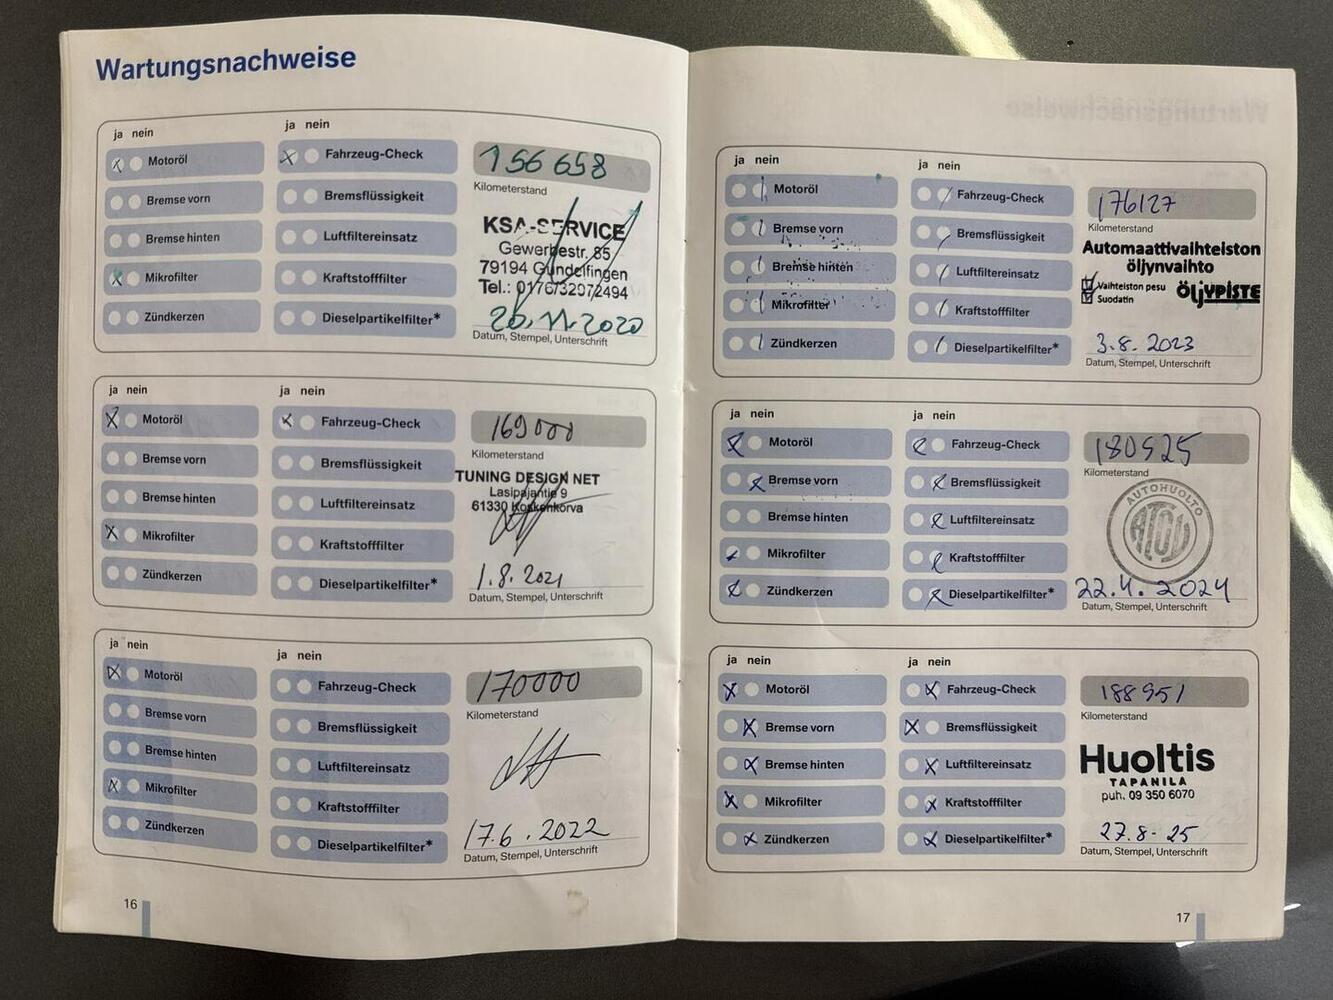 Wartungsnachweise
ja nein
ja nein
Motoröl
Fahrzeug-Check
156 658
Kilometerstand
Bremse vorn
Bremsflüssigkeit
KSA-SERVICE
Gewerbestr. 85
79194 Gundelfingen
Tel.: 0176/32072494
Bremse hinten
Luftfiltereinsatz
Mikrofilter
Kraftstofffilter
Zündkerzen
Dieselpartikelfilter*
26.11.2020
Datum, Stempel, Unterschrift
ja nein
ja nein
Motoröl
Fahrzeug-Check
169000
Kilometerstand
Bremse vorn
Bremsflüssigkeit
TUNING DESIGN NET
Lasipajantie 9
61330 Koskenkorva
Bremse hinten
Luftfiltereinsatz
Mikrofilter
Kraftstofffilter
Zündkerzen
Dieselpartikelfilter*
1.8.2021
Datum, Stempel, Unterschrift
ja nein
ja nein
Motoröl
Fahrzeug-Check
170000
Kilometerstand
Bremse vorn
Bremsflüssigkeit
Bremse hinten
Luftfiltereinsatz
Mikrofilter
Kraftstofffilter
Zündkerzen
Dieselpartikelfilter*
17.6.2022
Datum, Stempel, Unterschrift
16
ja nein
ja nein
Motoröl
Fahrzeug-Check
176127
Kilometerstand
Bremse vorn
Bremsflüssigkeit
Automaattivaihteiston
öljynvaihto
Vaihteiston pesu
Suodatin
ÖLJYPISTE
Bremse hinten
Luftfiltereinsatz
Mikrofilter
Kraftstofffilter
Zündkerzen
Dieselpartikelfilter*
3.8.2023
Datum, Stempel, Unterschrift
ja nein
ja nein
Motoröl
Fahrzeug-Check
180525
Kilometerstand
Bremse vorn
Bremsflüssigkeit
AUTOHUOLTO
Bremse hinten
Luftfiltereinsatz
Mikrofilter
Kraftstofffilter
Zündkerzen
Dieselpartikelfilter*
22.4.2024
Datum, Stempel, Unterschrift
ja nein
ja nein
Motoröl
Fahrzeug-Check
188951
Kilometerstand
Bremse vorn
Bremsflüssigkeit
Huoltis
TAPANILA
puh. 09 350 6070
Bremse hinten
Luftfiltereinsatz
Mikrofilter
Kraftstofffilter
Zündkerzen
Dieselpartikelfilter*
27.8-25
Datum, Stempel, Unterschrift
17